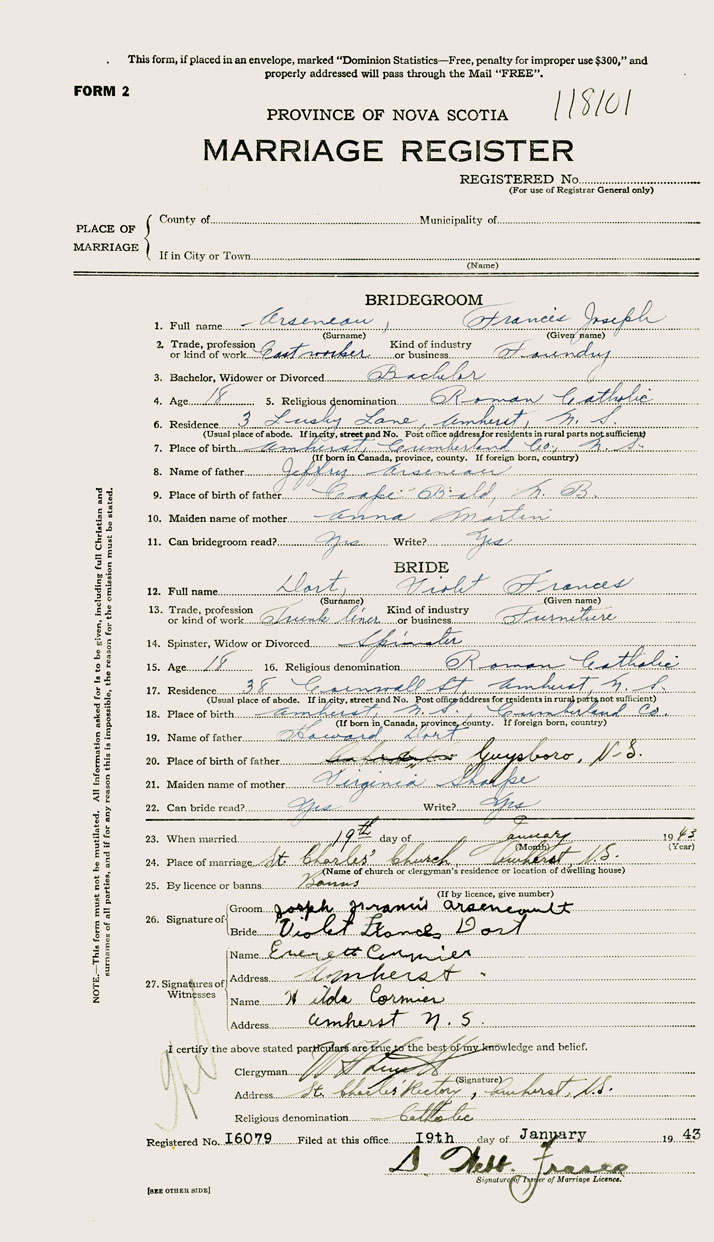 This form, if placed in an envelope, marked "Dominion Statistics—Free, penalty for improper use $300," and
properly addressed will pass through the Mail "FREE".
FORM 2
118101
PROVINCE OF NOVA SCOTIA
MARRIAGE REGISTER
REGISTERED No.
(For use of Registrar General only)
PLACE OF MARRIAGE
County of Municipality of
If in City or Town
(Name)
BRIDEGROOM
1. Full name Arseneau, Francis Joseph
(Surname) (Given name)
2. Trade, profession or kind of work Coat worker Kind of industry or business Foundry
3. Bachelor, Widower or Divorced Bachelor
4. Age 18 5. Religious denomination Roman Catholic
6. Residence 3 Lusby Lane, Amherst, N. S.
(Usual place of abode. If in city, street and No. Post office address for residents in rural parts not sufficient)
7. Place of birth Amherst, Cumberland Co., N. S.
(If born in Canada, province, county. If foreign born, country)
8. Name of father Jeffry Arseneau
9. Place of birth of father Cape Bald, N. B.
10. Maiden name of mother Anna Martin
11. Can bridegroom read? Yes Write? Yes
BRIDE
12. Full name Dort, Violet Frances
(Surname) (Given name)
13. Trade, profession or kind of work Trunk liner Kind of industry or business Furniture
14. Spinster, Widow or Divorced Spinster
15. Age 18 16. Religious denomination Roman Catholic
17. Residence 38 Cornwall St, Amherst N. S.
(Usual place of abode. If in city, street and No. Post office address for residents in rural parts not sufficient)
18. Place of birth Amherst, N. S., Cumberland Co.
(If born in Canada, province, county. If foreign born, country)
19. Name of father Howard Dort
20. Place of birth of father Guysboro, N-S.
21. Maiden name of mother Virginia Sharpe
22. Can bride read? Yes Write? Yes
23. When married 19th day of January 1943
(Month) (Year)
24. Place of marriage St. Charles' Church Amherst, N.S.
(Name of church or clergyman's residence or location of dwelling house)
25. By licence or banns Banns
(If by licence, give number)
26. Signature of Groom Joseph Francis Arseneault
Bride Violet Frances Dort
27. Signatures of Witnesses Name Everett Cormier
Address Amherst
Name Hilda Cormier
Address Amherst N. S.
I certify the above stated particulars are true to the best of my knowledge and belief.
Clergyman
(Signature)
Address St. Charles' Rectory, Amherst, N.S.
Religious denomination Catholic
Registered No. I6079 Filed at this office I9th day of January 19 43
Fraser
Signature of Issuer of Marriage Licence.
[SEE OTHER SIDE]
NOTE.—This form must not be mutilated. All information asked for is to be given, including full Christian and
surnames of all parties, and if for any reason this is impossible, the reason for the omission must be stated.